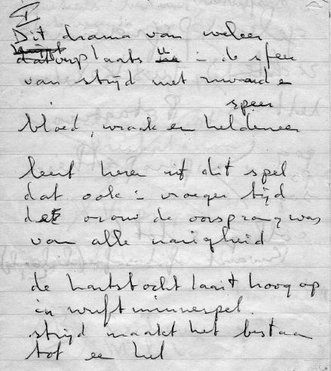 I
Dit drama van weleer
verplaatst u in de sfeer
van strijd met zwaard en
speer
bloed, wraak en heldeneer
leert heren uit dit spel
dat ook in vroeger tijd
de vrouw de oorsprong was
van alle narigheid
de hartstocht laait hoog op
in wuft minnespel
strijd maakt het bestaan
tot een hel